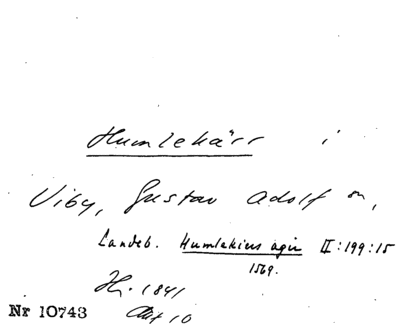 Humlekärr i
Viby, Gustav Adolf sn,
Landeb. Humlekiers ägir II:199:15
1569.
Hj. 1841
Akt 10
Nr 10743